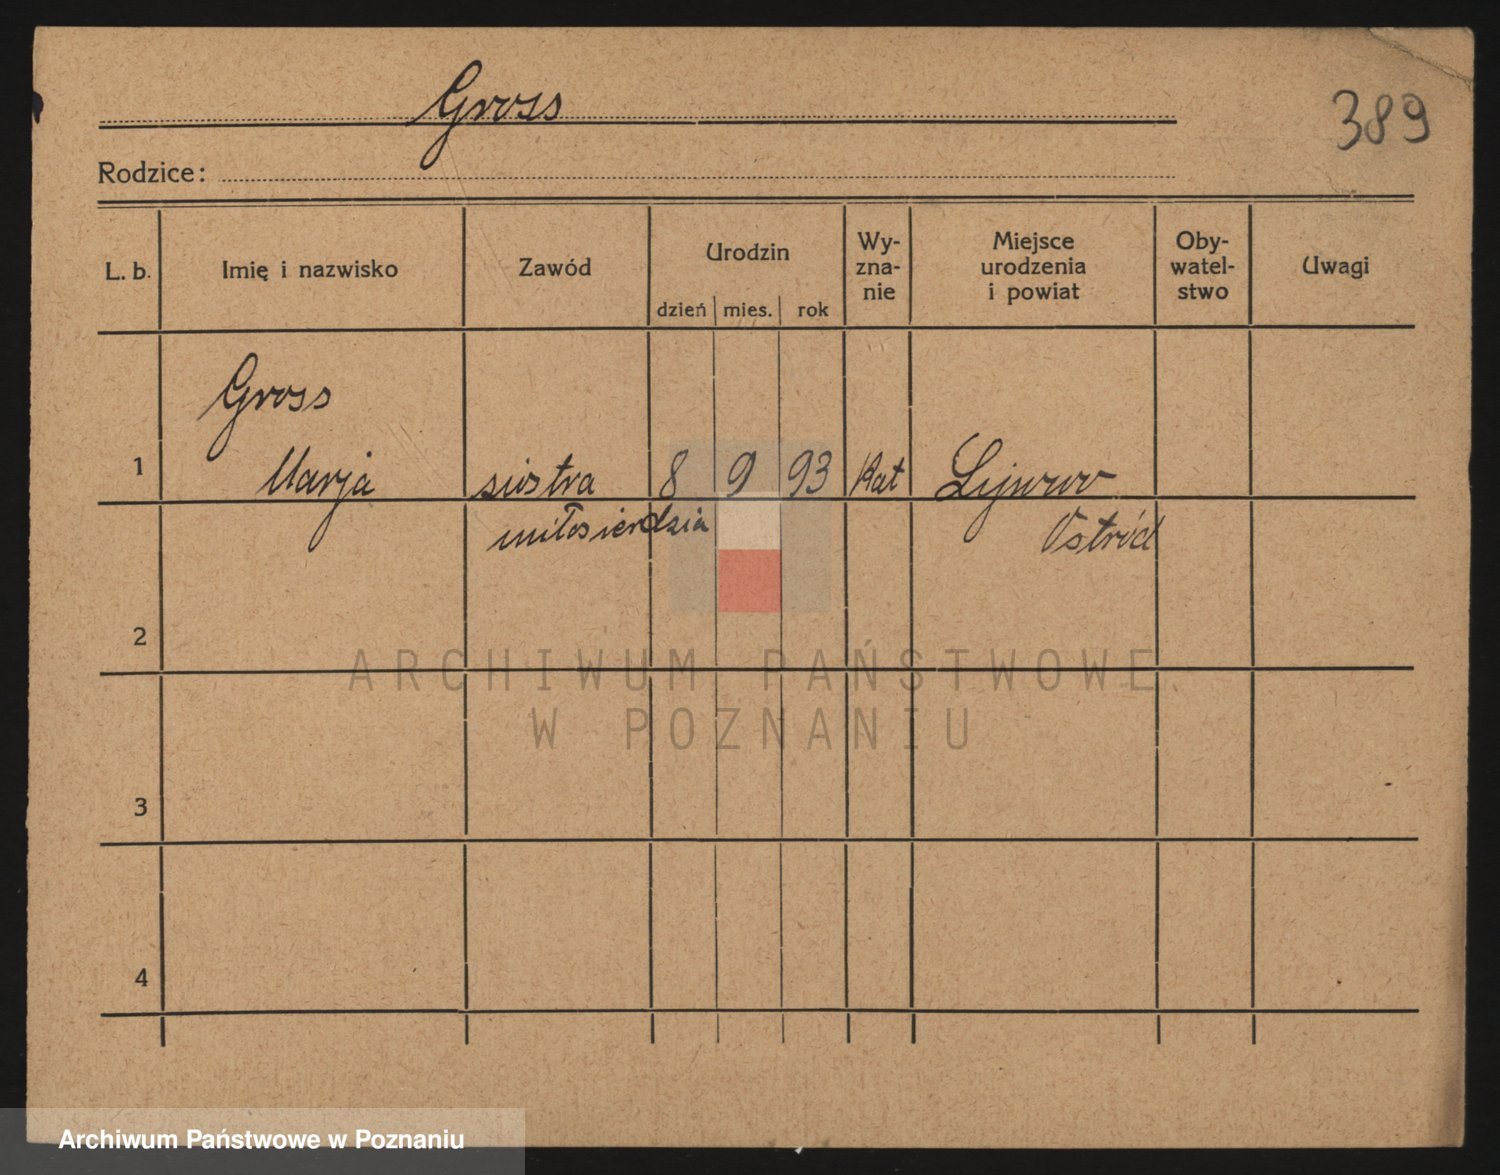 Gross
389
Rodzice:
L. b. Imię i nazwisko Zawód Urodzin dzień mies. rok Wy-zna-nie Miejsce urodzenia i powiat Oby-watel-stwo Uwagi
Gross
1 Marja siostra 8 9 93 Kat
miłosierdzia Ostród
2
ARCHIWUM PAŃSTWOWE
W POZNANIU
3
4
Archiwum Państwowe w Poznaniu